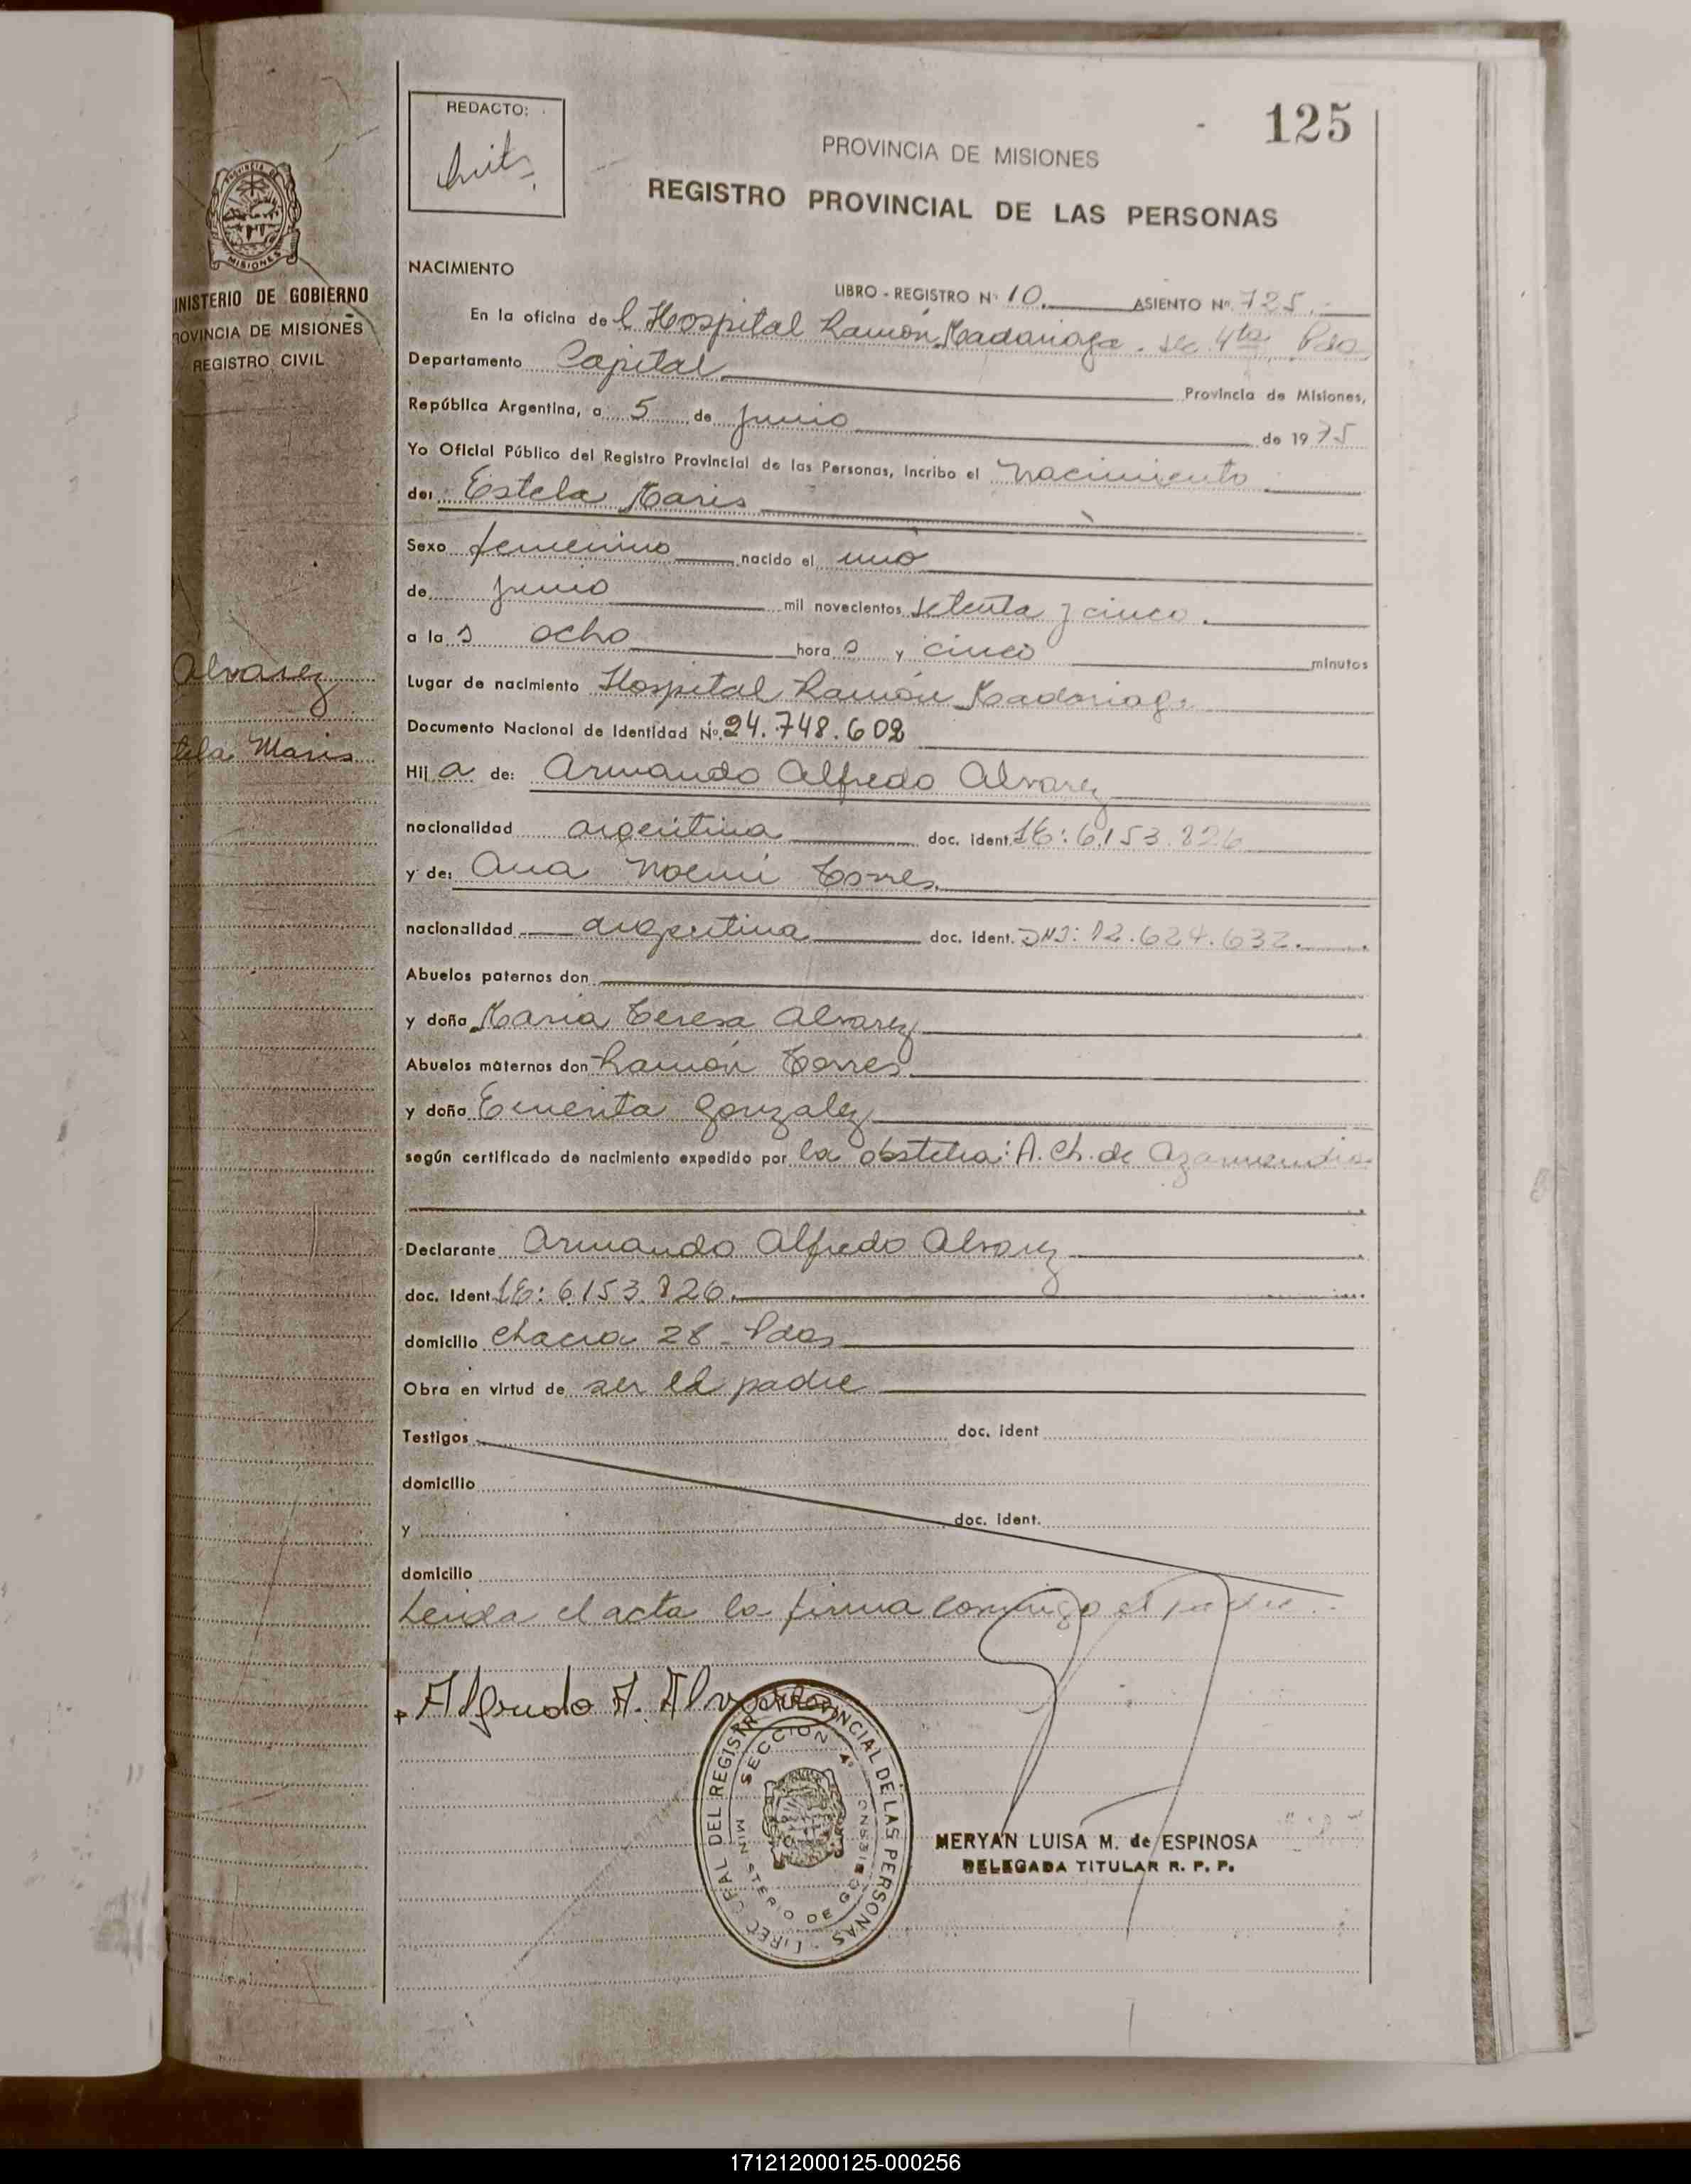 125
REDACTO:
PROVINCIA DE MISIONES
REGISTRO PROVINCIAL DE LAS PERSONAS
MISIONES
INISTERIO DE GOBIERNO
ROVINCIA DE MISIONES
REGISTRO CIVIL
Alvarez
tela Maris
NACIMIENTO
LIBRO - REGISTRO Nº 10. ASIENTO Nº 725.-
En la oficina del Hospital Ramón Madariaga. sec 4ta Pdas
Departamento Capital Provincia de Misiones,
República Argentina, a 5 de junio de 1975
Yo Oficial Público del Registro Provincial de las Personas, incribo el nacimiento
de: Estela Maris
Sexo femenino nacido el uno
de junio mil novecientos setenta y cinco.
a las ocho horas y cinco minutos
Lugar de nacimiento Hospital Ramón Madariaga
Documento Nacional de Identidad Nº 24.748.602
Hija de: Armando Alfredo Alvarez
nacionalidad argentina doc. ident. LE: 6.153.826
y de: Ana Noemí Torres.
nacionalidad argentina doc. ident. DNI: 12.624.632.
Abuelos paternos don
y doña María Teresa Alvarez
Abuelos maternos don Ramón Torres.
y doña Emerita Gonzalez
según certificado de nacimiento expedido por la obstetra: A. Ch. de Azarmendia
Declarante Armando Alfredo Alvarez
doc. ident LE: 6.153.826.
domicilio Chacra 28 - Pdas
Obra en virtud de ser el padre
Testigos doc. ident
domicilio
y doc. ident.
domicilio
Leida el acta la firma conmigo el padre.-
Alfredo A. Alvarez
DIREC. GRAL DEL REGISTRO PROVINCIAL DE LAS PERSONAS
SECCION 4ª
MINISTERIO DE GOBIERNO
MERYAN LUISA M. de ESPINOSA
DELEGADA TITULAR R. P. P.
171212000125-000256